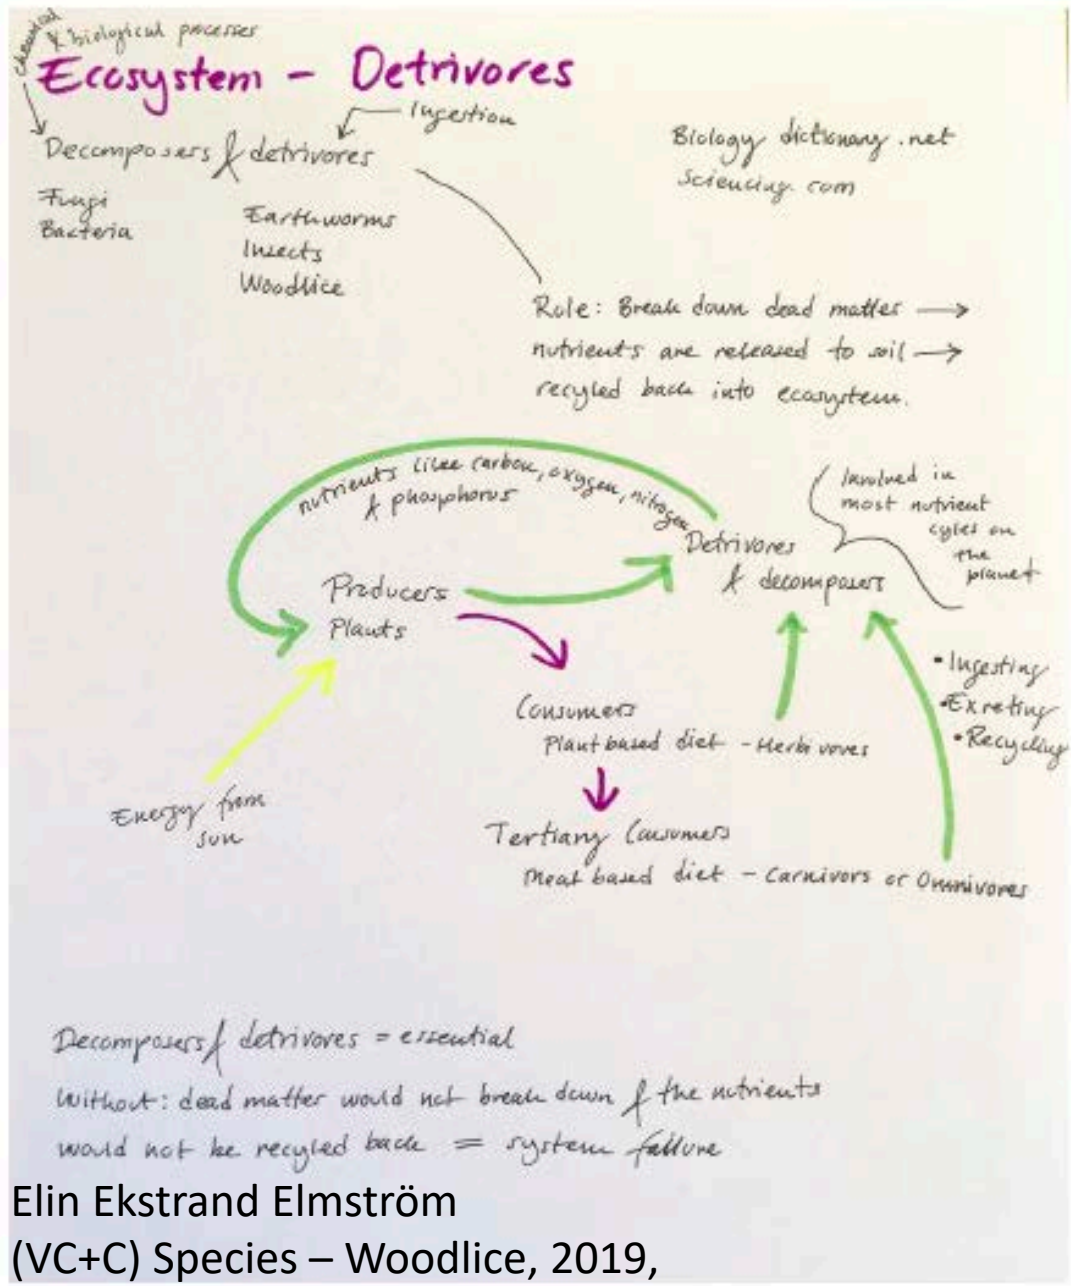 chemical
& biological processes
Ecosystem - Detrivores
Ingestion
Decomposers & detrivores
Fungi
Bacteria
Earthworms
Insects
Woodlice
Biology dictionary.net
Sciencing.com
Role: Break down dead matter →
nutrients are released to soil →
recyled back into ecosystem.
nutrients like carbon, oxygen, nitrogen
& phosphorus
Involved in
most nutrient
cyles on
the
planet
Detrivores
& decomposers
Producers
Plants
• Ingesting
• Exreting
• Recycling
Consumers
Plant based diet - Herbivores
Energy from
sun
Tertiary Consumers
Meat based diet - Carnivors or Omnivores
Decomposers & detrivores = essential
Without: dead matter would not break down & the nutrients
would not be recyled back = system failure
Elin Ekstrand Elmström
(VC+C) Species – Woodlice, 2019,